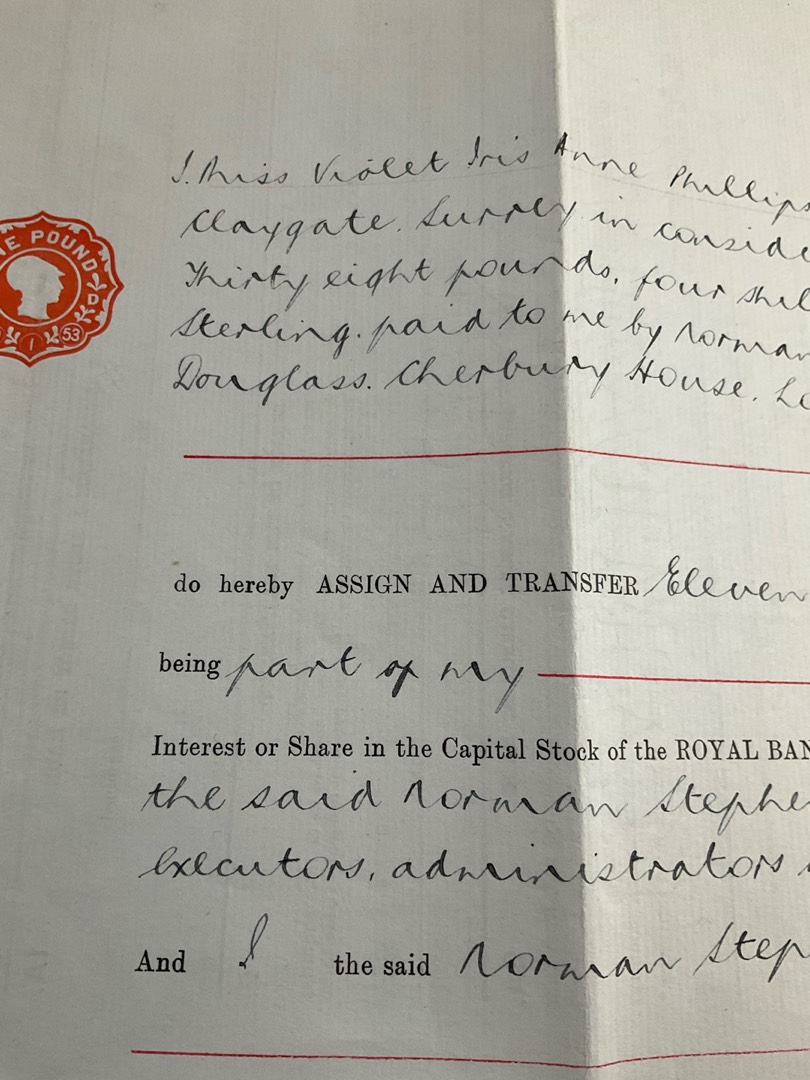 I. Miss Violet Iris Anne Phillips
Claygate. Surrey in conside
Thirty eight pounds, four shil
Sterling. paid to me by Norman
Douglass. Cherbury House. Lo
do hereby ASSIGN AND TRANSFER Eleven
being part of my
Interest or Share in the Capital Stock of the ROYAL BAN
the said Norman Stephe
executors, administrators
And I the said Norman Step
E POUND
1 53